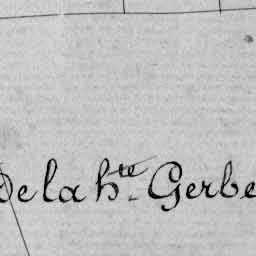 De la h.te Gerbe